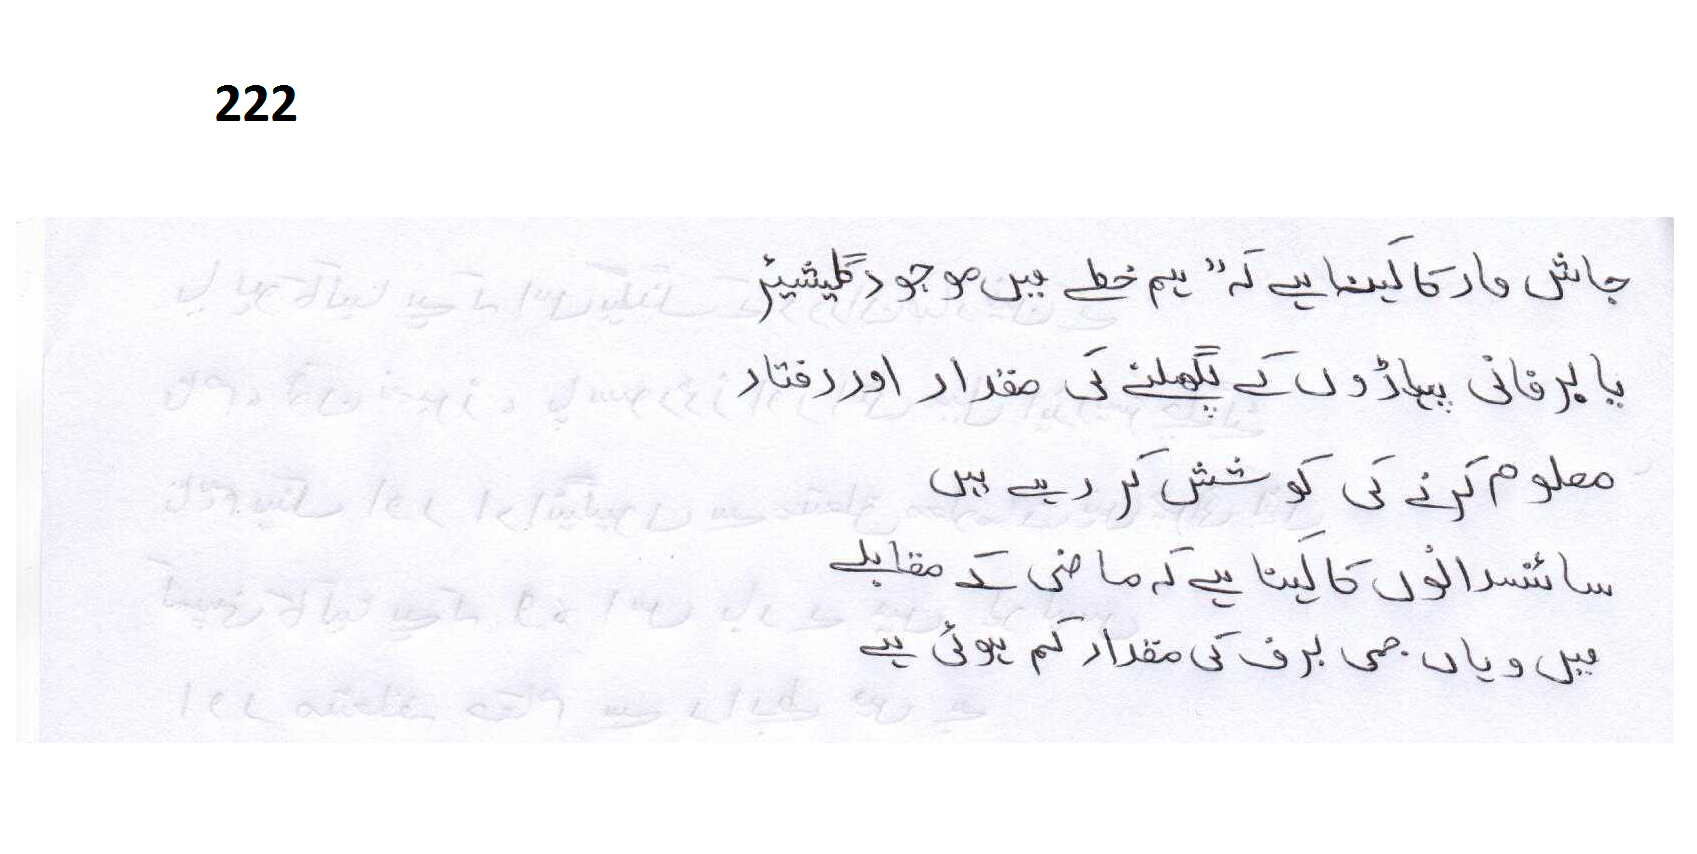 222
جانش مار کا کہنا ہے کہ" ہم خطے میں موجود گلیشیئر
یا برفانی پہاڑوں کے پگھلنے کی مقدار اور رفتار
معلوم کرنے کی کوشش کر رہے ہیں
سائنسدانوں کا کہنا ہے کہ ماضی کے مقابلے
میں وہاں جمی برف کی مقدار کم ہوئی ہے